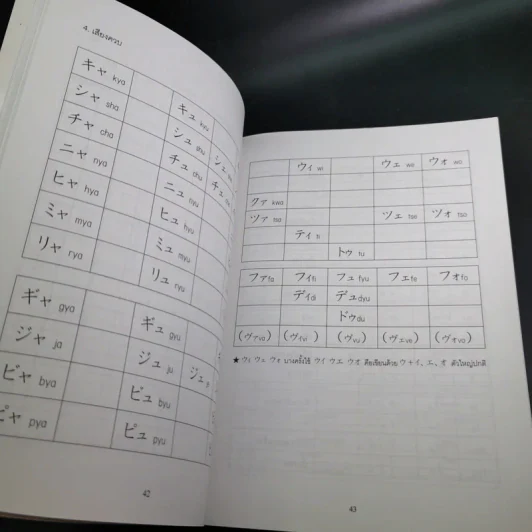 4. เสียงควบ
キャ kya キュ kyu
シャ sha シュ shu
チャ cha チュ chu
ニャ nya ニュ nyu
ヒャ hya ヒュ hyu
ミャ mya ミュ myu
リャ rya リュ ryu
ギャ gya ギュ gyu
ジャ ja ジュ ju
ビャ bya ビュ byu
ピャ pya ピュ pyu
42
ウィ wi ウェ we ウォ wo
クァ kwa
ツァ tsa ツェ tse ツォ tso
ティ ti
トゥ tu
ファ fa フィ fi フュ fyu フェ fe フォ fo
ディ di デュ dyu
ドゥ du
(ヴァ va) (ヴィ vi) (ヴ vu) (ヴェ ve) (ヴォ vo)
★ ウィ ウェ ウォ บางครั้งใช้ ウイ ウエ ウオ คือเขียนด้วย ウ + イ, エ, オ ตัวใหญ่ปกติ
43